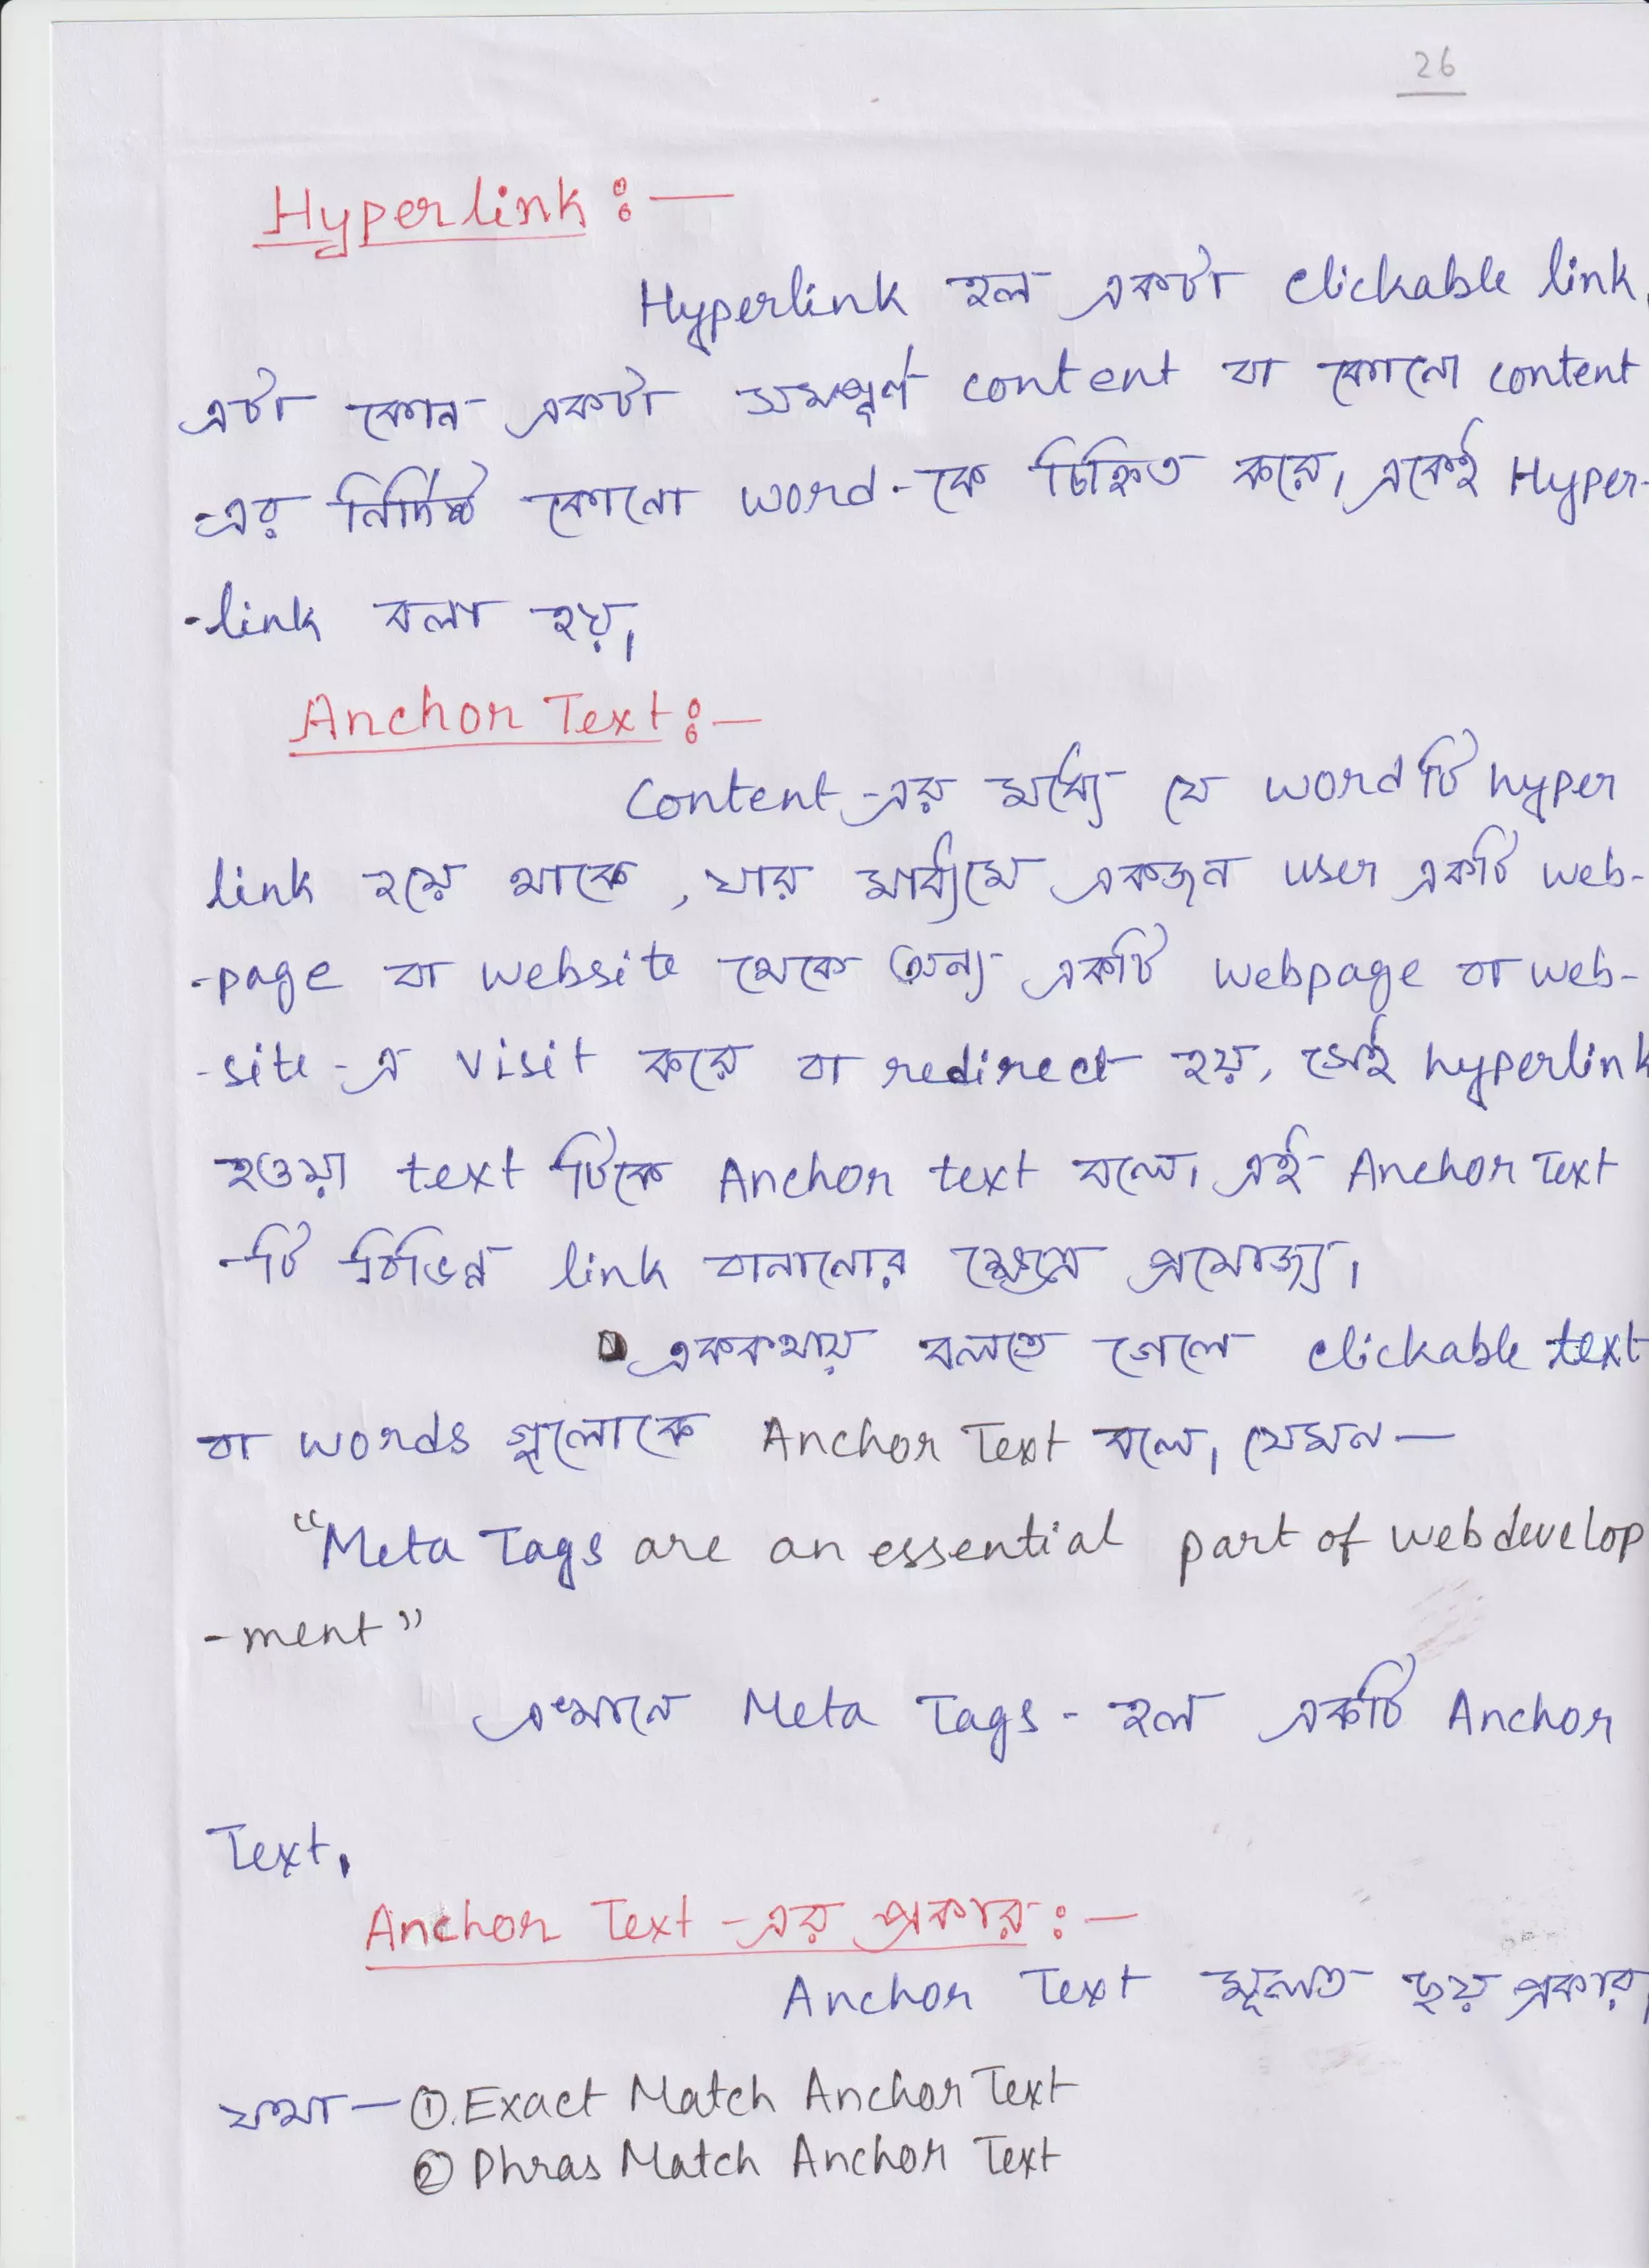 26
Hyperlink :—
Hyperlink হল একটা clickable link,
এটা কোন একটা সম্পূর্ণ content বা কোনো content
-এর নির্দিষ্ট কোনো word-কে চিহ্নিত করে। একেই Hyper-
-link বলা হয়।
Anchor Text :—
Content-এর মধ্যে যে word টি hyper
link হয়ে থাকে, যার মাধ্যমে একজন user একটি web-
-page বা website থেকে অন্য একটি webpage বা web-
-site-এ visit করে বা redirect হয়, সেই hyperlink
হওয়া text টিকে Anchor text বলে। এই Anchor Text
-টি বিভিন্ন link বানানোর ক্ষেত্রে প্রযোজ্য।
এককথায় বলতে গেলে clickable text
বা words গুলোকে Anchor Text বলে। যেমন—
“Meta Tags are an essential part of web develop
-ment”
এখানে Meta Tags - হল একটি Anchor
Text।
Anchor Text -এর প্রকার :—
Anchor Text মূলত ছয় প্রকার।
যথা— ①. Exact Match Anchor Text
② Phras Match Anchor Text